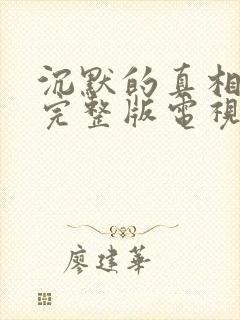 沉默的真相
完整版電視
廖建華